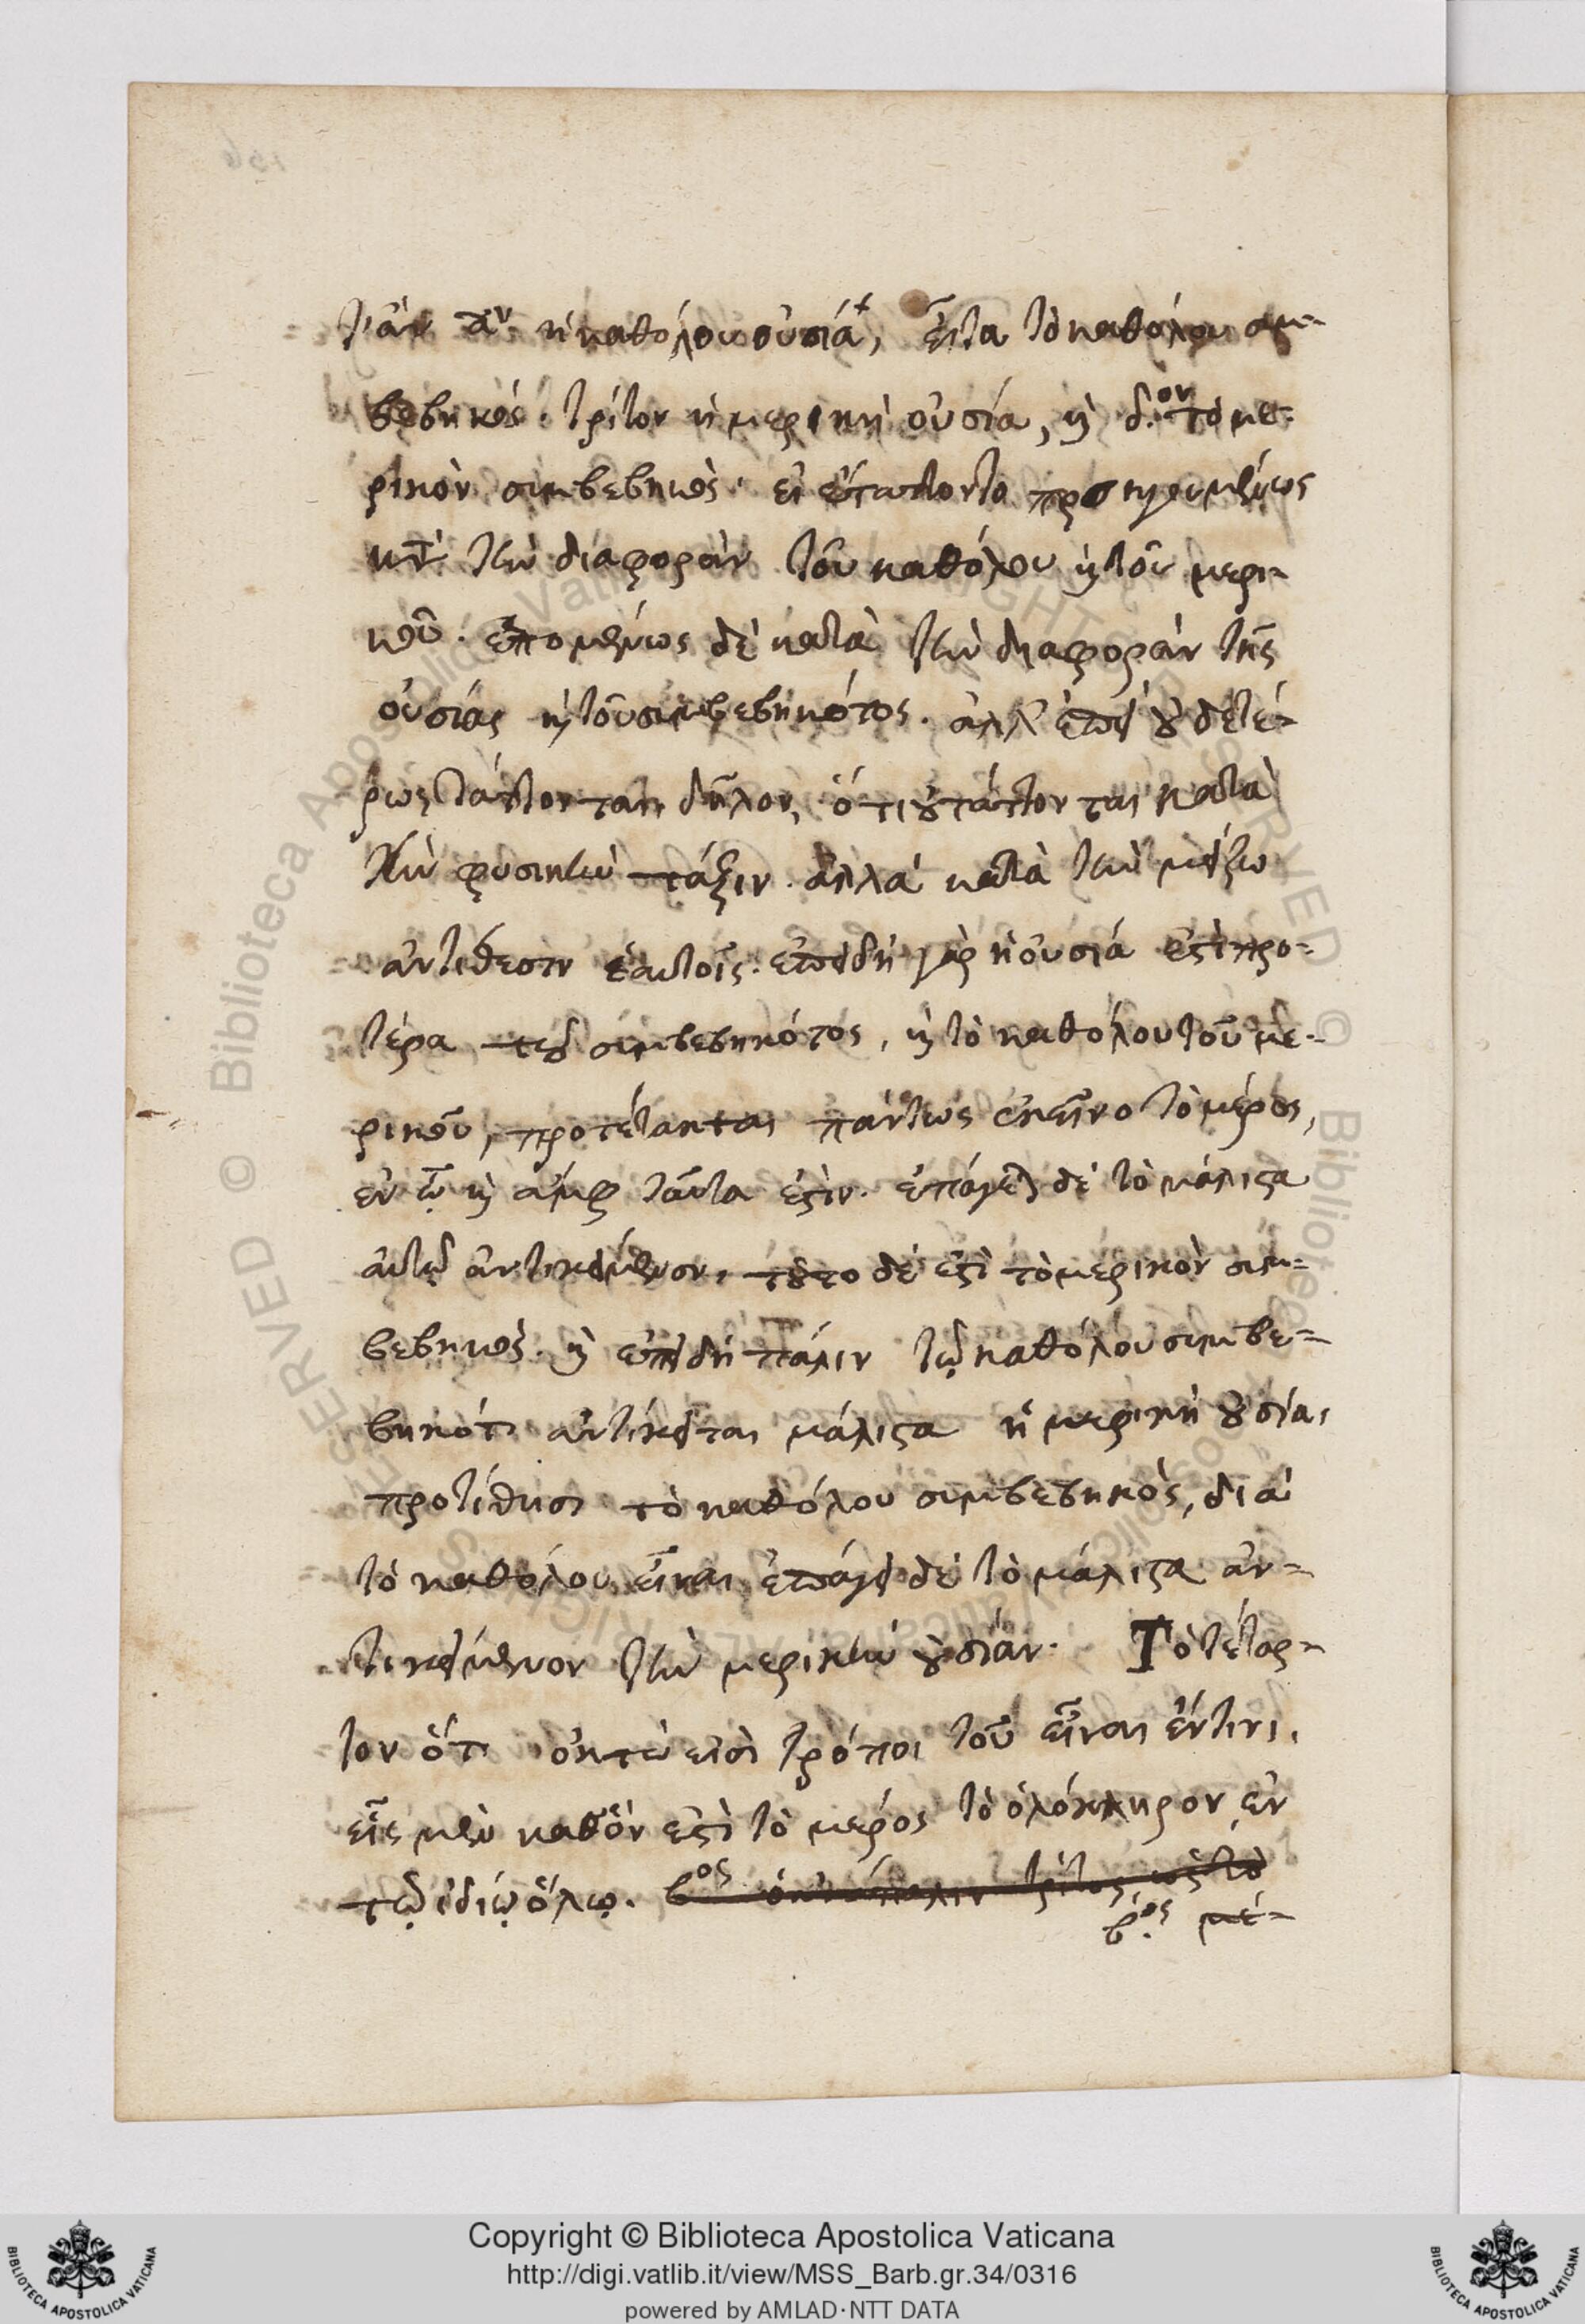 ἦν ἂν αʹν ἡ καθόλου οὐσία, εἶτα τὸ καθόλου συμ-
βεβηκός. τρίτον ἡ μερικὴ οὐσία, καὶ δ.ον τὸ με-
ρικὸν συμβεβηκὸς. εἰ ἐτάττοντο προηγουμένως
κατὰ τὴν διαφορὰν τοῦ καθόλου καὶ τοῦ μερι-
κοῦ. ἑπομένως δὲ κατὰ τὴν διαφορὰν τῆς
οὐσίας καὶ τοῦ συμβεβηκότος. ἀλλ' ἐπεὶ οὐδετέ-
ρως τάττονται, δῆλον, ὅτι οὐ τάττονται κατὰ
τὴν φυσικὴν τάξιν. ἀλλὰ κατὰ τὴν μείζω
ἀντίθεσιν ἑαυτοῖς. ἐπειδὴ γὰρ ἡ οὐσία ἐστὶ προ-
τέρα τοῦ συμβεβηκότος, καὶ τὸ καθόλου τοῦ με-
ρικοῦ, προτέτακται πάντως ἐκεῖνο τὸ μέρος,
ἐν ᾧ καὶ ἄμφω ταῦτα ἐστίν. ἐπάγει δὲ τὸ μάλιστα
αὐτῷ ἀντικείμενον, τοῦτο δέ ἐστι τὸ μερικὸν συμ-
βεβηκὸς. καὶ ἐπειδὴ πάλιν τῷ καθόλου συμβε-
βηκότι ἀντίκειται μάλιστα ἡ μερικὴ οὐσία,
προτίθησι τὸ καθόλου συμβεβηκός, διὰ
τὸ καθόλου εἶναι, ἐπάγει δὲ τὸ μάλιστα ἀν-
τικείμενον τὴν μερικὴν οὐσίαν. Τὸ τέταρ-
τον ὅτι ὀκτώ εἰσι τρόποι τοῦ εἶναι ἔν τινι,
εἷς μὲν καθ' ὅν ἐστι τὸ μέρος τὸ ὁλόκληρον, ἐν
τῷ ἰδίῳ ὅλῳ. βος τρίτος, ὡς τὸ
β.ος μέ-
Copyright © Biblioteca Apostolica Vaticana
http://digi.vatlib.it/view/MSS_Barb.gr.34/0316
powered by AMLAD·NTT DATA